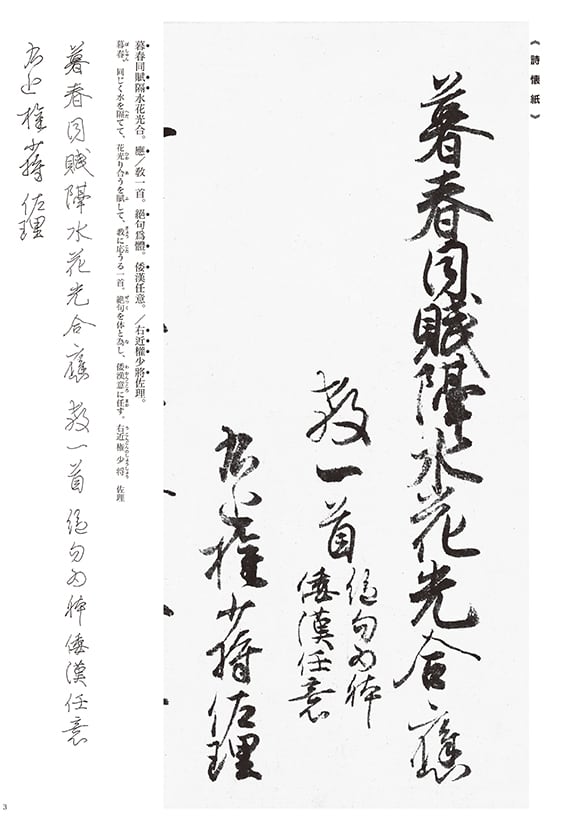 《詩懐紙》
暮春同賦隔水花光合應
教一首
絶句為躰
倭漢任意
右近権少将佐理
暮春同賦隔水花光合。應／教一首。絕句爲體。倭漢任意。／右近權少將佐理。
暮春、同じく水を隔てて、花光り合うを賦して、教に応うる一首、絶句を体と為し、倭漢意に任す。右近権少将 佐理
暮春同賦隔水花光合應 教一首 絶句為躰倭漢任意
右近権少将佐理
3